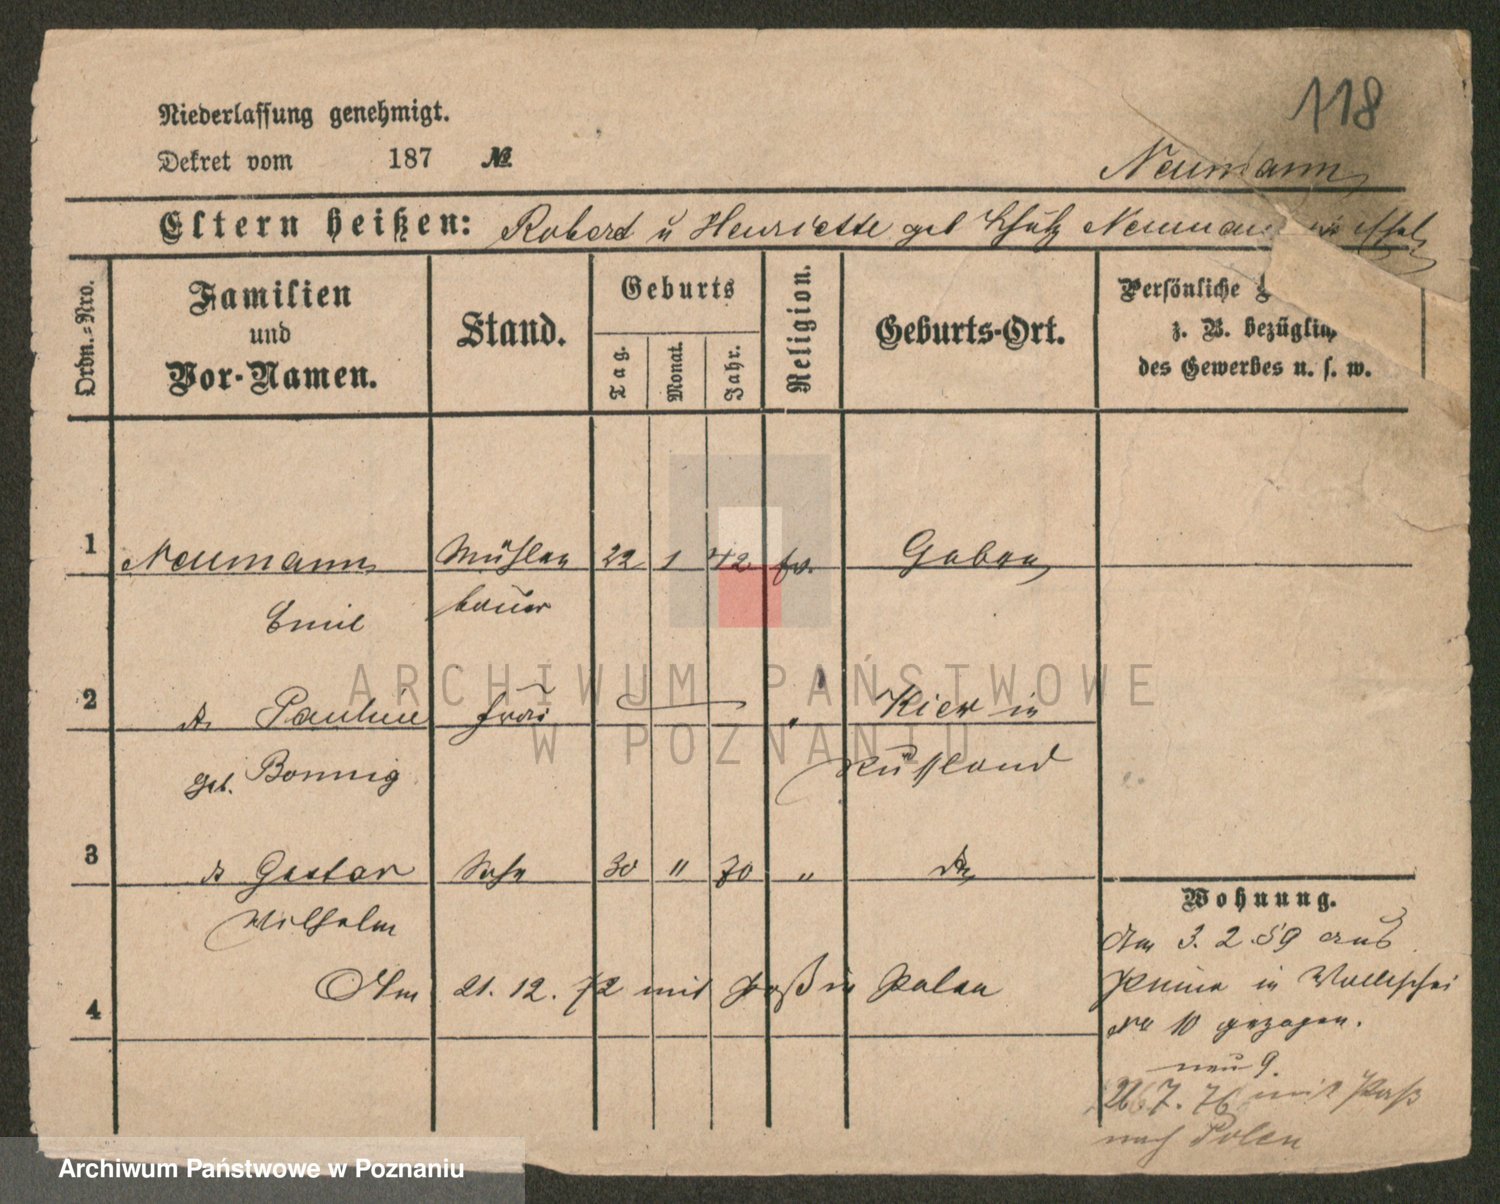 118
Niederlassung genehmigt.
Dekret vom 187 №
Neumann
Eltern heißen: Robert u Henriette geb Neumann
Ordn.=Nro.
Familien
und
Vor-Namen.
Stand.
Geburts
Tag.
Monat.
Jahr.
Religion.
Geburts-Ort.
Persönliche
z. B. bezüglich
des Gewerbes u. s. w.
1 Neumann Mühlen 22 1 42 ev.
Emil bauer
2 Pauline Frau Kiew in
geb. Bonnig Rußland
3 Gustav Sohn 30 " 70 "
Wilhelm
4 Am 21. 12. 72 mit Paß in Polen
Wohnung.
Am 3. 2. 59 aus
in Wallischei
No 10 gezogen.
neu 9.
26 7. 76 mit Paß
nach Polen
ARCHIWUM PAŃSTWOWE
W POZNANIU
Archiwum Państwowe w Poznaniu